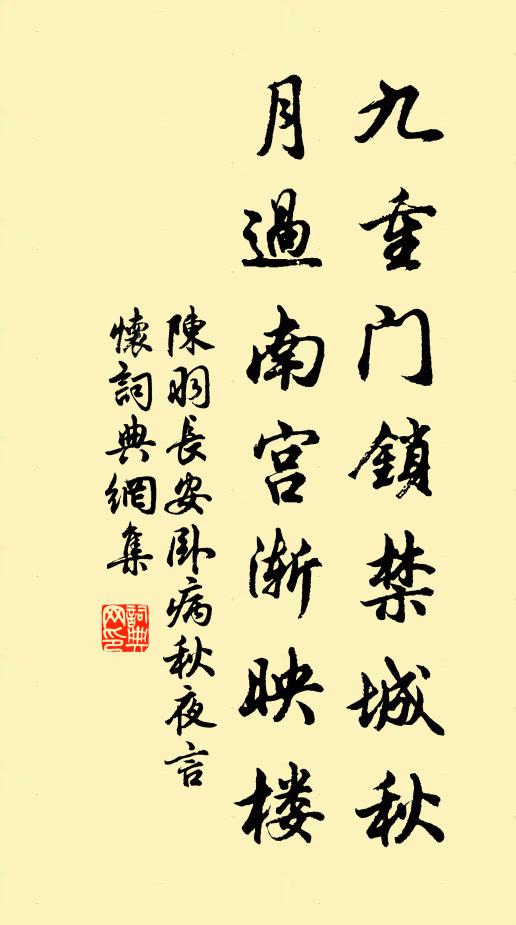 九重门鎖禁城秋
月過南宫渐映楼
陳羽長安卧病秋夜言
懷詞典網集
詞典网印